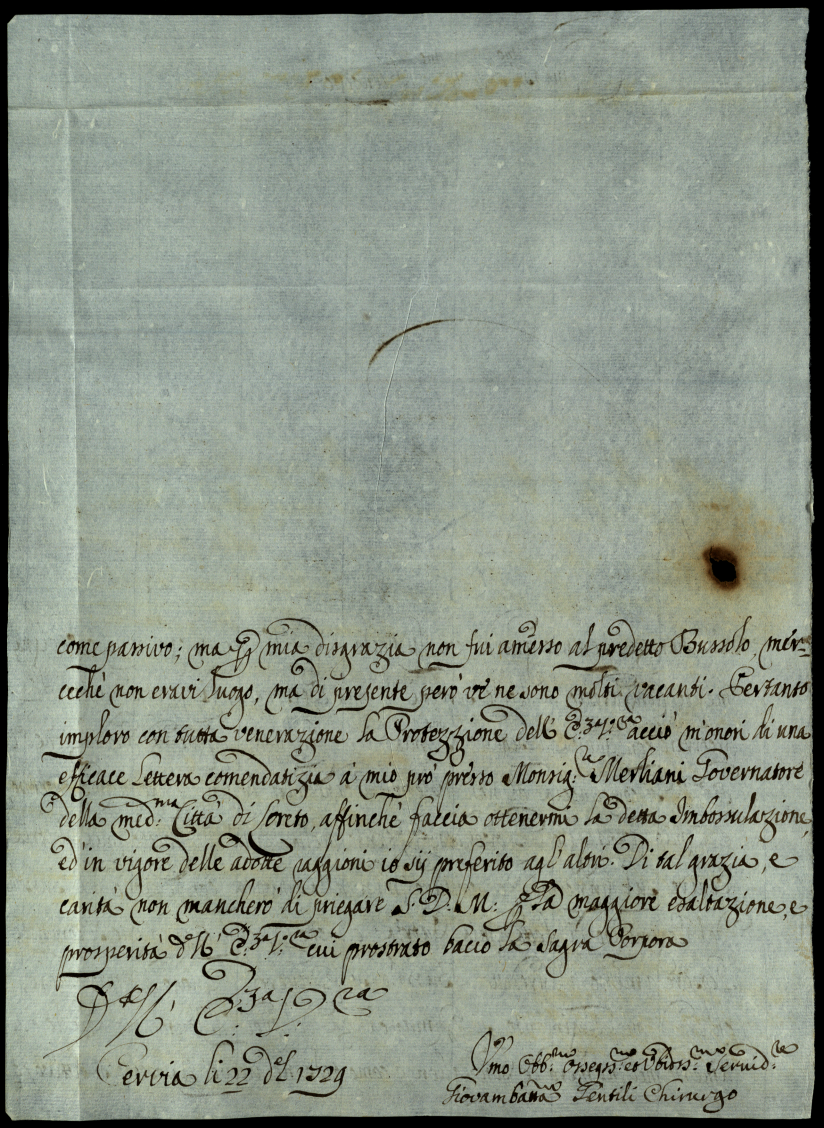 come passivo; ma p mia disgrazia non fui amesso al predetto Bussolo, mer=
cechè non eravi luogo, ma di presente però ve ne sono molti vacanti. Pertanto
imploro con tutta venerazione la Protezzione dell' E.za V.ra acciò m'onori di una
efficace Lettera comendatizia à mio prò presso Monsig.re Merliani Governatore
della med.ma Città di Loreto, affinchè faccia ottenermi la detta Imbossulazione,
ed' in vigore delle adotte raggioni io sij preferito agl'altri. Di tal grazia, e
carità non mancherò di priegare S. D. M: p la maggiore esaltazione, e
prosperità dell' E.za V.ra cui prostrato bacio la Sagra Porpora
Dell' E.za V.ra
Cervia li 22 del 1729
Umo Obb.mo Osseqss.mo et Obidss.mo Servid.re
Giovambatta Gentili Chirurgo